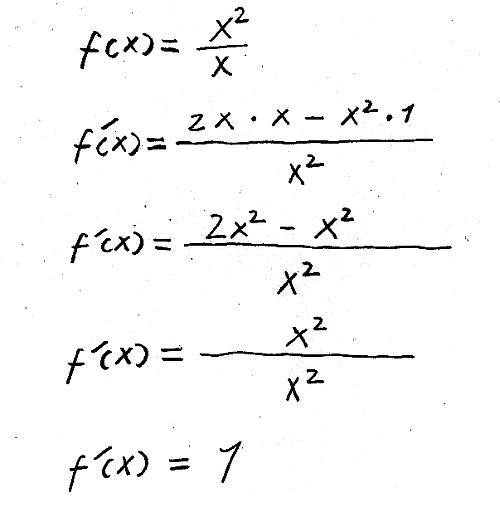 f(x) = x²/x
f´(x) = (2x · x − x² · 1)/x²
f´(x) = (2x² − x²)/x²
f´(x) = x²/x²
f´(x) = 1